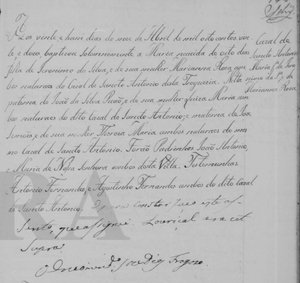 Aos vinte e hum dias do mes de Abril de mil oito centos vin
te e dous, baptizei solemnemente a Maria, nascida de oito dias
filha de Jeronimo da Silva, e de sua mulher Marianna Rosa, am
bos naturaes do Cazal de Santo Antonio desta Freguezia. Netta
paterna de João da Silva, e de sua mulher Luiza Maria am
bos naturaes do dito Cazal de Santo Antonio; e materna de Joa
e de sua mulher Thereza Maria, ambos naturaes do mes
mo Cazal de Santo Antonio. Forão Padrinhos João Antonio,
e Maria de ambos desta Villa. Testemunhas
Antonio Fernandes, e Agostinho Fernandes ambos do dito Cazal
de Santo Antonio. E para constar fiz este as
sento, que assignei. Louriçal era ut
supra
O
Cazal de
Santo Antonio
Maria f.ª de
Jeronimo da S.ª
Marianna Rosa